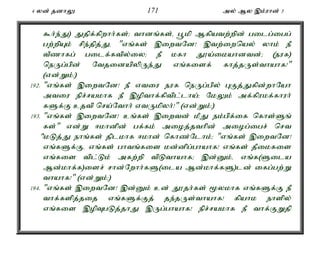 4 லன் தனாலு 171 அல் ஆல இம்ரான் 3
கூர்ந்து) துதிக்கிறார்கள்; வானங்கள், பூமி ஆகியவற்றின் படைப்பைப்
பற்றியும் சிந்தித்து, "எங்கள் இறைவனே! இவற்றையெல் லாம் நீ
வீணாகப் படைக்கவில்லை; நீ மகா தூய்மையானவன்; (நரக)
நெருப்பின் வேதனையிலிருந்து எங்களைக் காத்தருள்வாயாக!"
(என்றும்;)
192. "எங்கள் இறைவனே! நீ எவரை நரக நெருப்பில் புகுத்துகின்றாயோ
அவரை நிச்சயமாக நீ இழிவாக்கிவிட்டாய்; மேலும் அக்கிரமக்காரர்
களுக்கு உதவி செய்வோர் எவருமிலர்!" (என்றும்;)
193. "எங்கள் இறைவனே! உங்கள் இறைவன் மீது நம்பிக்கை கொள்ளுங்
கள்" என்று ஈமானின் பக்கம் அழைத்தவரின் அழைப்பைச் செவி
மடுத்து நாங்கள் திடமாக ஈமான் கொண்டோம்; "எங்கள் இறைவனே!
எங்களுக்கு, எங்கள் பாவங்களை மன்னிப்பாயாக! எங்கள் தீமைகளை
எங்களை விட்டும் அகற்றி விடுவாயாக; இன்னும், எங்க(ளுடைய
ஆன்மாக்க)ளைச் சான்றோர்களு(டைய ஆன்மாக்களு)டன் கைப்பற்று
வாயாக!" (என்றும்;)
194. "எங்கள் இறைவனே! இன்னும் உன் தூதர்கள் மூலமாக எங்களுக்கு நீ
வாக்களித்ததை எங்களுக்குத் தந்தருள்வாயாக! கியாம நாளில்
எங்களை இழிவுபடுத்தாது இருப்பாயாக! நிச்சயமாக நீ வாக்குறுதி